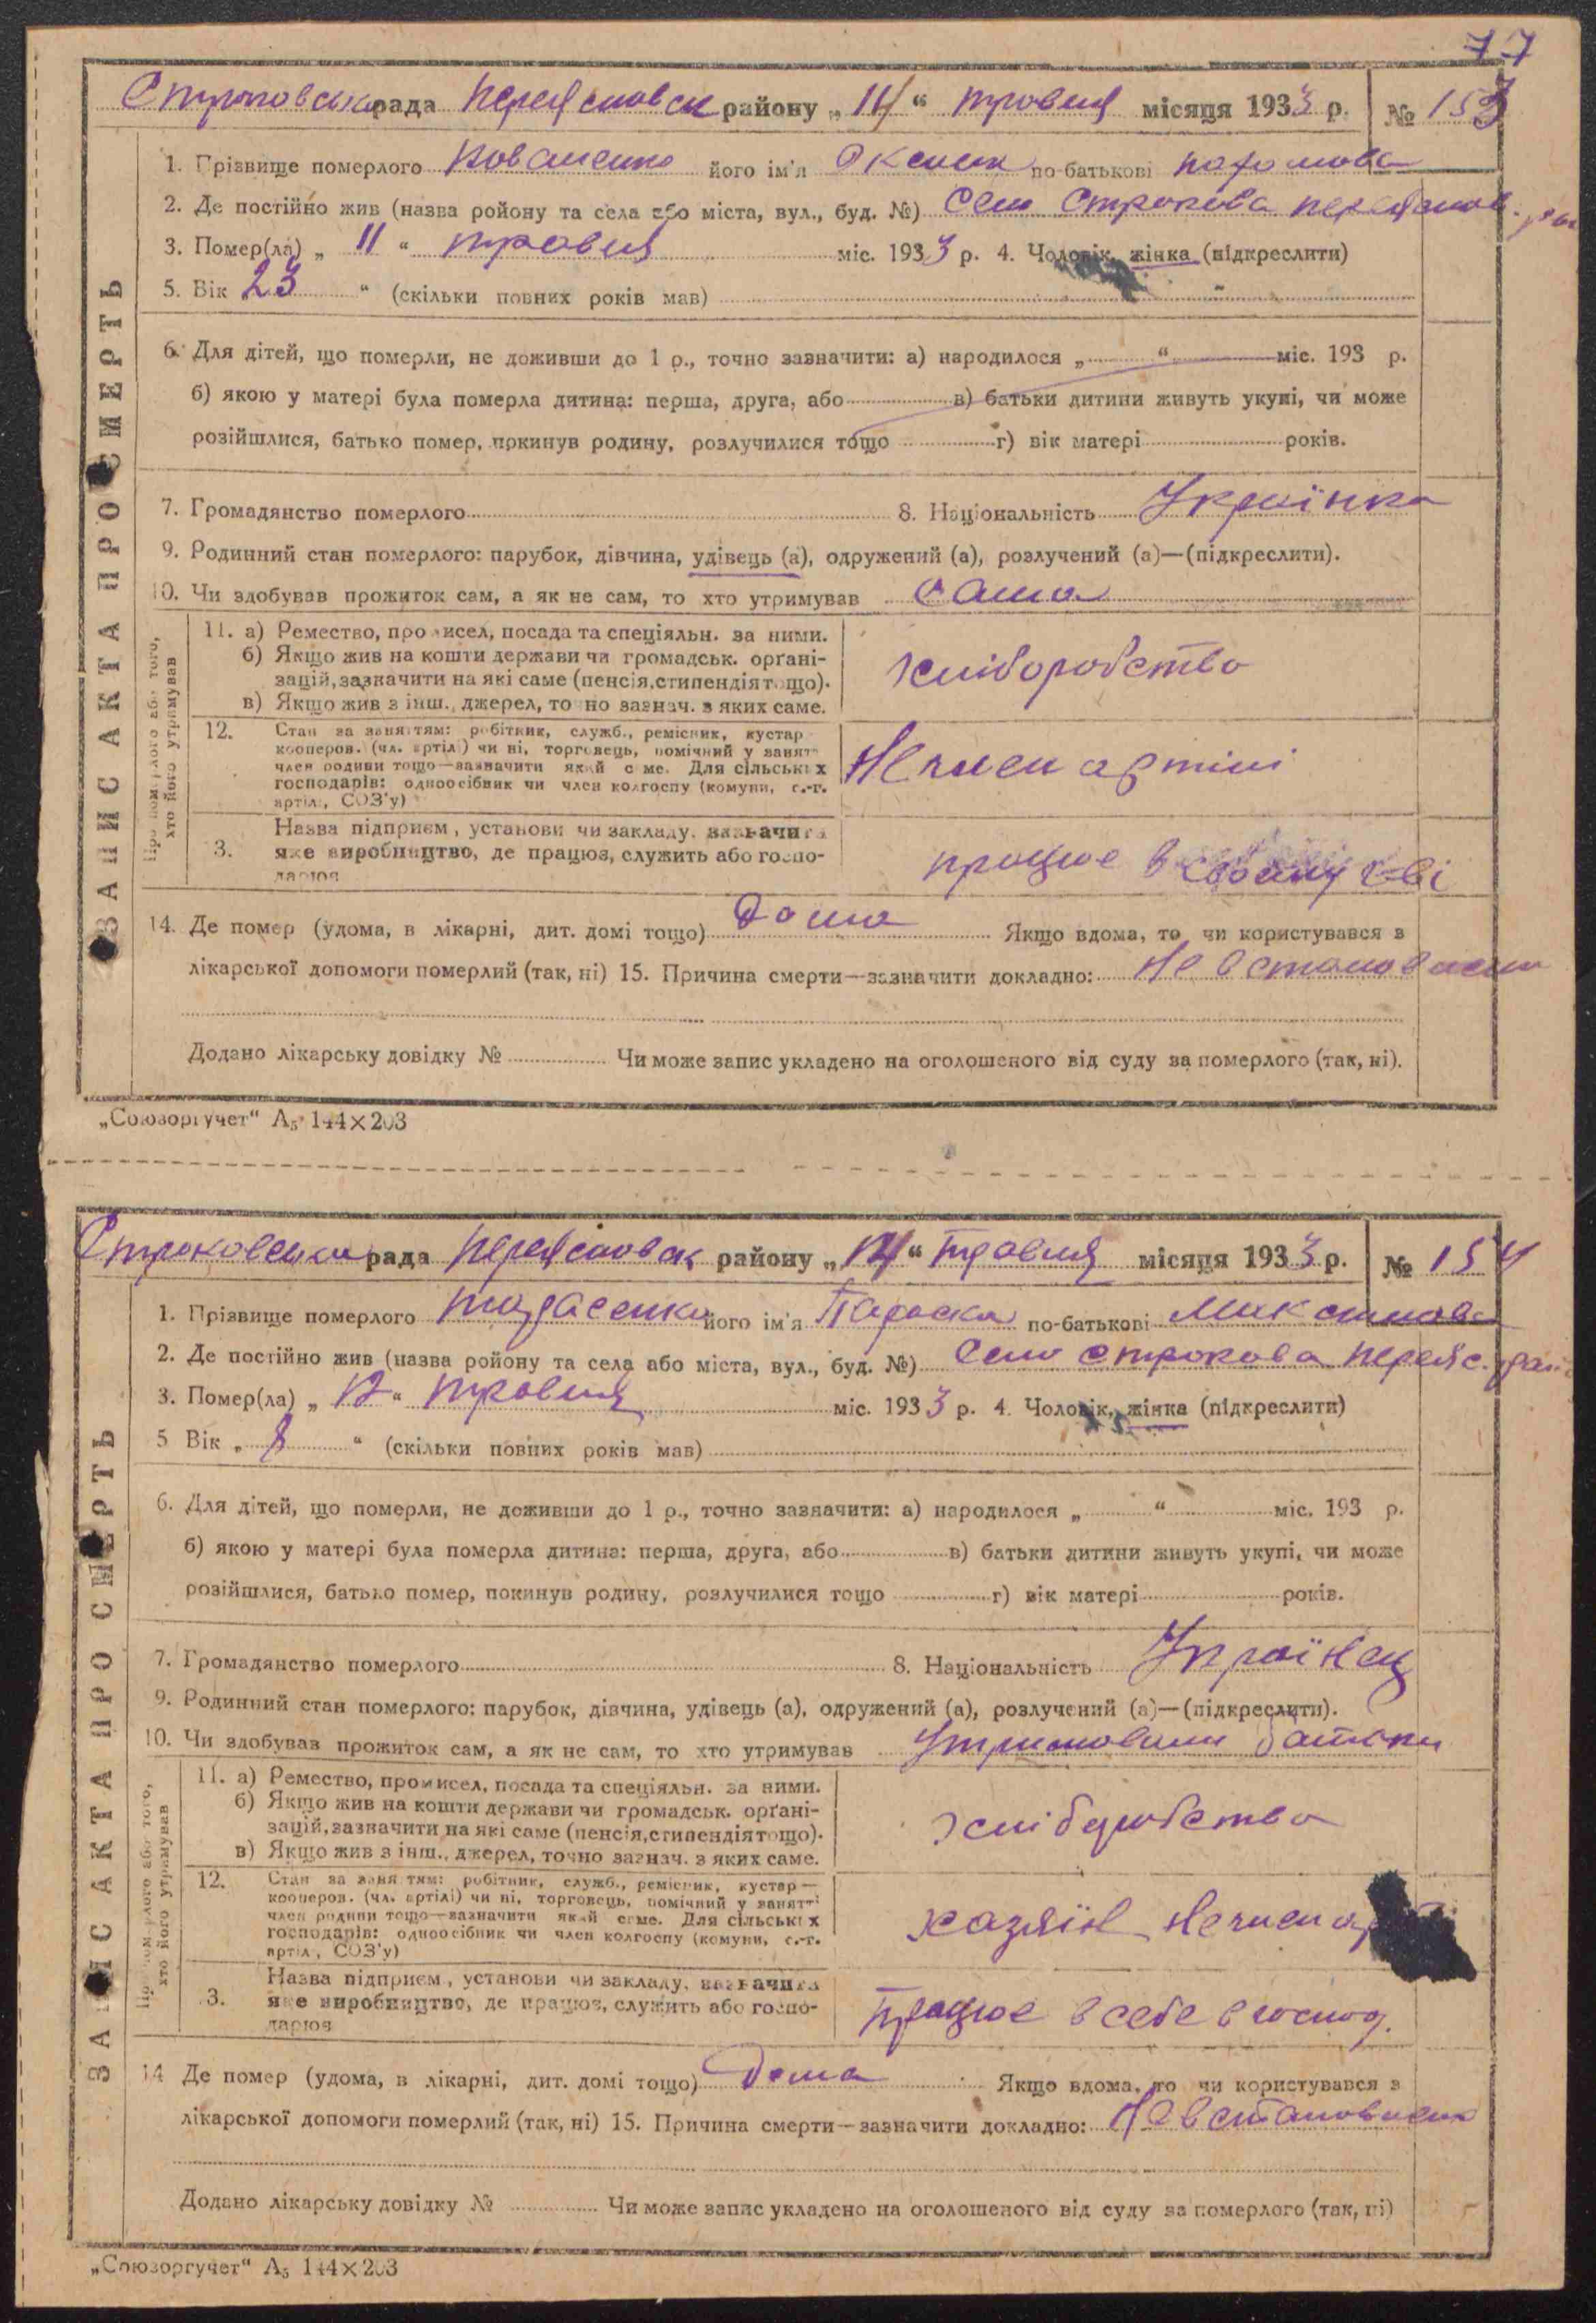 77
Строковська рада Переясловськ району „14“ травня місяця 1933 р. № 153
1. Прізвище померлого Коваленко його ім'я Оксана по-батькові
2. Де постійно жив (назва ройону та села або міста, вул., буд. №) Село Строкова Переяслов. рай
3. Помер(ла) „ 11 “ травня міс. 1933 р. 4. Чоловік, жінка (підкреслити)
5. Вік 23 “ (скільки повних років мав)
6. Для дітей, що померли, не доживши до 1 р., точно зазначити: а) народилося „ “ міс. 193 р.
б) якою у матері була померла дитина: перша, друга, або в) батьки дитини живуть укупі, чи може
розійшлися, батько помер, покинув родину, розлучилися тощо г) вік матері років.
7. Громадянство померлого 8. Національність Українка
9. Родинний стан померлого: парубок, дівчина, удівець (а), одружений (а), розлучений (а)—(підкреслити).
10. Чи здобував прожиток сам, а як не сам, то хто утримував сама
Про померлого або того, хто його утримував
11. а) Ремество, промисел, посада та спеціяльн. за ними.
б) Якщо жив на кошти держави чи громадськ. орґані-
зацій, зазначити на які саме (пенсія, стипендія тощо).
в) Якщо жив з інш., джерел, точно зазнач. з яких саме.
хліборобство
12. Стан за заняттям: робітник, служб., ремісник, кустар
кооперов. (чл. артілі) чи ні, торговець, помічний у занятті
член родини тощо—зазначити який саме. Для сільських
господарів: одноосібник чи член колгоспу (комуни, с.-г.
артілі, СОЗ'у)
Нечлен артілі
3. Назва підприєм, установи чи закладу, зазначити
яке виробництво, де працює, служить або госпо-
дарює
працює в своїму г-ві
14. Де помер (удома, в лікарні, дит. домі тощо) Дома Якщо вдома, то чи користувався з
лікарської допомоги померлий (так, ні) 15. Причина смерти—зазначити докладно: Не встановлено
Додано лікарську довідку № Чи може запис укладено на оголошеного від суду за померлого (так, ні).
ЗАПИС АКТА ПРО СМЕРТЬ
„Союзоргучет“ А₅ 144×203
Строковська рада Переясловськ району „14“ травня місяця 1933 р. № 154
1. Прізвище померлого Тарасенко його ім'я Параска по-батькові
2. Де постійно жив (назва ройону та села або міста, вул., буд. №) Село Строкова Переяс. рай.
3. Помер(ла) „ 12 “ травня міс. 1933 р. 4. Чоловік, жінка (підкреслити)
5 Вік „ 8 “ (скільки повних років мав)
6. Для дітей, що померли, не доживши до 1 р., точно зазначити: а) народилося „ “ міс. 193 р.
б) якою у матері була померла дитина: перша, друга, або в) батьки дитини живуть укупі, чи може
розійшлися, батько помер, покинув родину, розлучилися тощо г) вік матері років.
7. Громадянство померлого 8. Національність Українец
9. Родинний стан померлого: парубок, дівчина, удівець (а), одружений (а), розлучений (а)—(підкреслити).
10. Чи здобував прожиток сам, а як не сам, то хто утримував Утримовали батьки
Про померлого або того, хто його утримував
11. а) Ремество, промисел, посада та спеціяльн. за ними.
б) Якщо жив на кошти держави чи громадськ. орґані-
зацій, зазначити на які саме (пенсія, стипендія тощо).
в) Якщо жив з інш., джерел, точно зазнач. з яких саме.
хліборобство
12. Стан за заняттям: робітник, служб., ремісник, кустар—
кооперов. (чл. артілі) чи ні, торговець, помічний у занятті
член родини тощо—зазначити який саме. Для сільських
господарів: одноосібник чи член колгоспу (комуни, с.-г.
артіл, СОЗ'у)
хазяїн Нечлен
3. Назва підприєм, установи чи закладу, зазначити
яке виробництво, де працює, служить або госпо-
дарює
Працює в себе в господ.
14 Де помер (удома, в лікарні, дит. домі тощо) Дома Якщо вдома, то чи користувався з
лікарської допомоги померлий (так, ні) 15. Причина смерти—зазначити докладно: Не встановлено
Додано лікарську довідку № Чи може запис укладено на оголошеного від суду за померлого (так, ні)
ЗАПИС АКТА ПРО СМЕРТЬ
„Союзоргучет“ А₅ 144×203